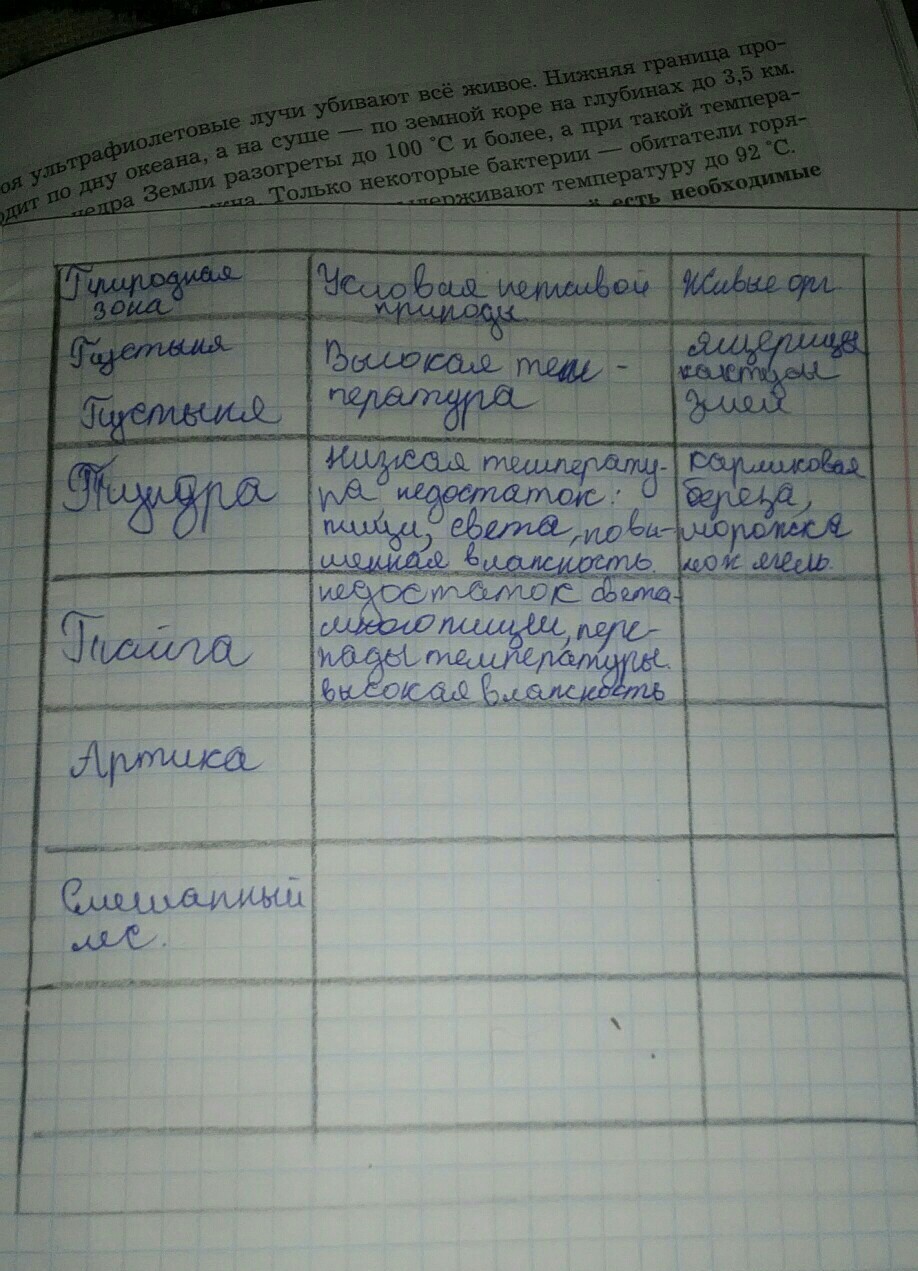 оя ультрафиолетовые лучи убивают всё живое. Нижняя граница про-
одит по дну океана, а на суше — по земной коре на глубинах до 3,5 км.
недра Земли разогреты до 100 °С и более, а при такой темпера-
Только некоторые бактерии — обитатели горя-
держивают температуру до 92 °С.
есть необходимые
Природная зона
Условая неживой природы
Живые орг.
Пустыня
Пустыня
Высокая тем-
пература
ящерицы
кактусы
змеи
Тундра
низкая температу-
ра недостаток:
пищи, света, повы-
шенная влажность.
карликовая
береза,
морошка
мох ягель.
Тайга
недостаток света
много пищи, пере-
пады температуры.
высокая влажность
Артика
Смешанный
лес.